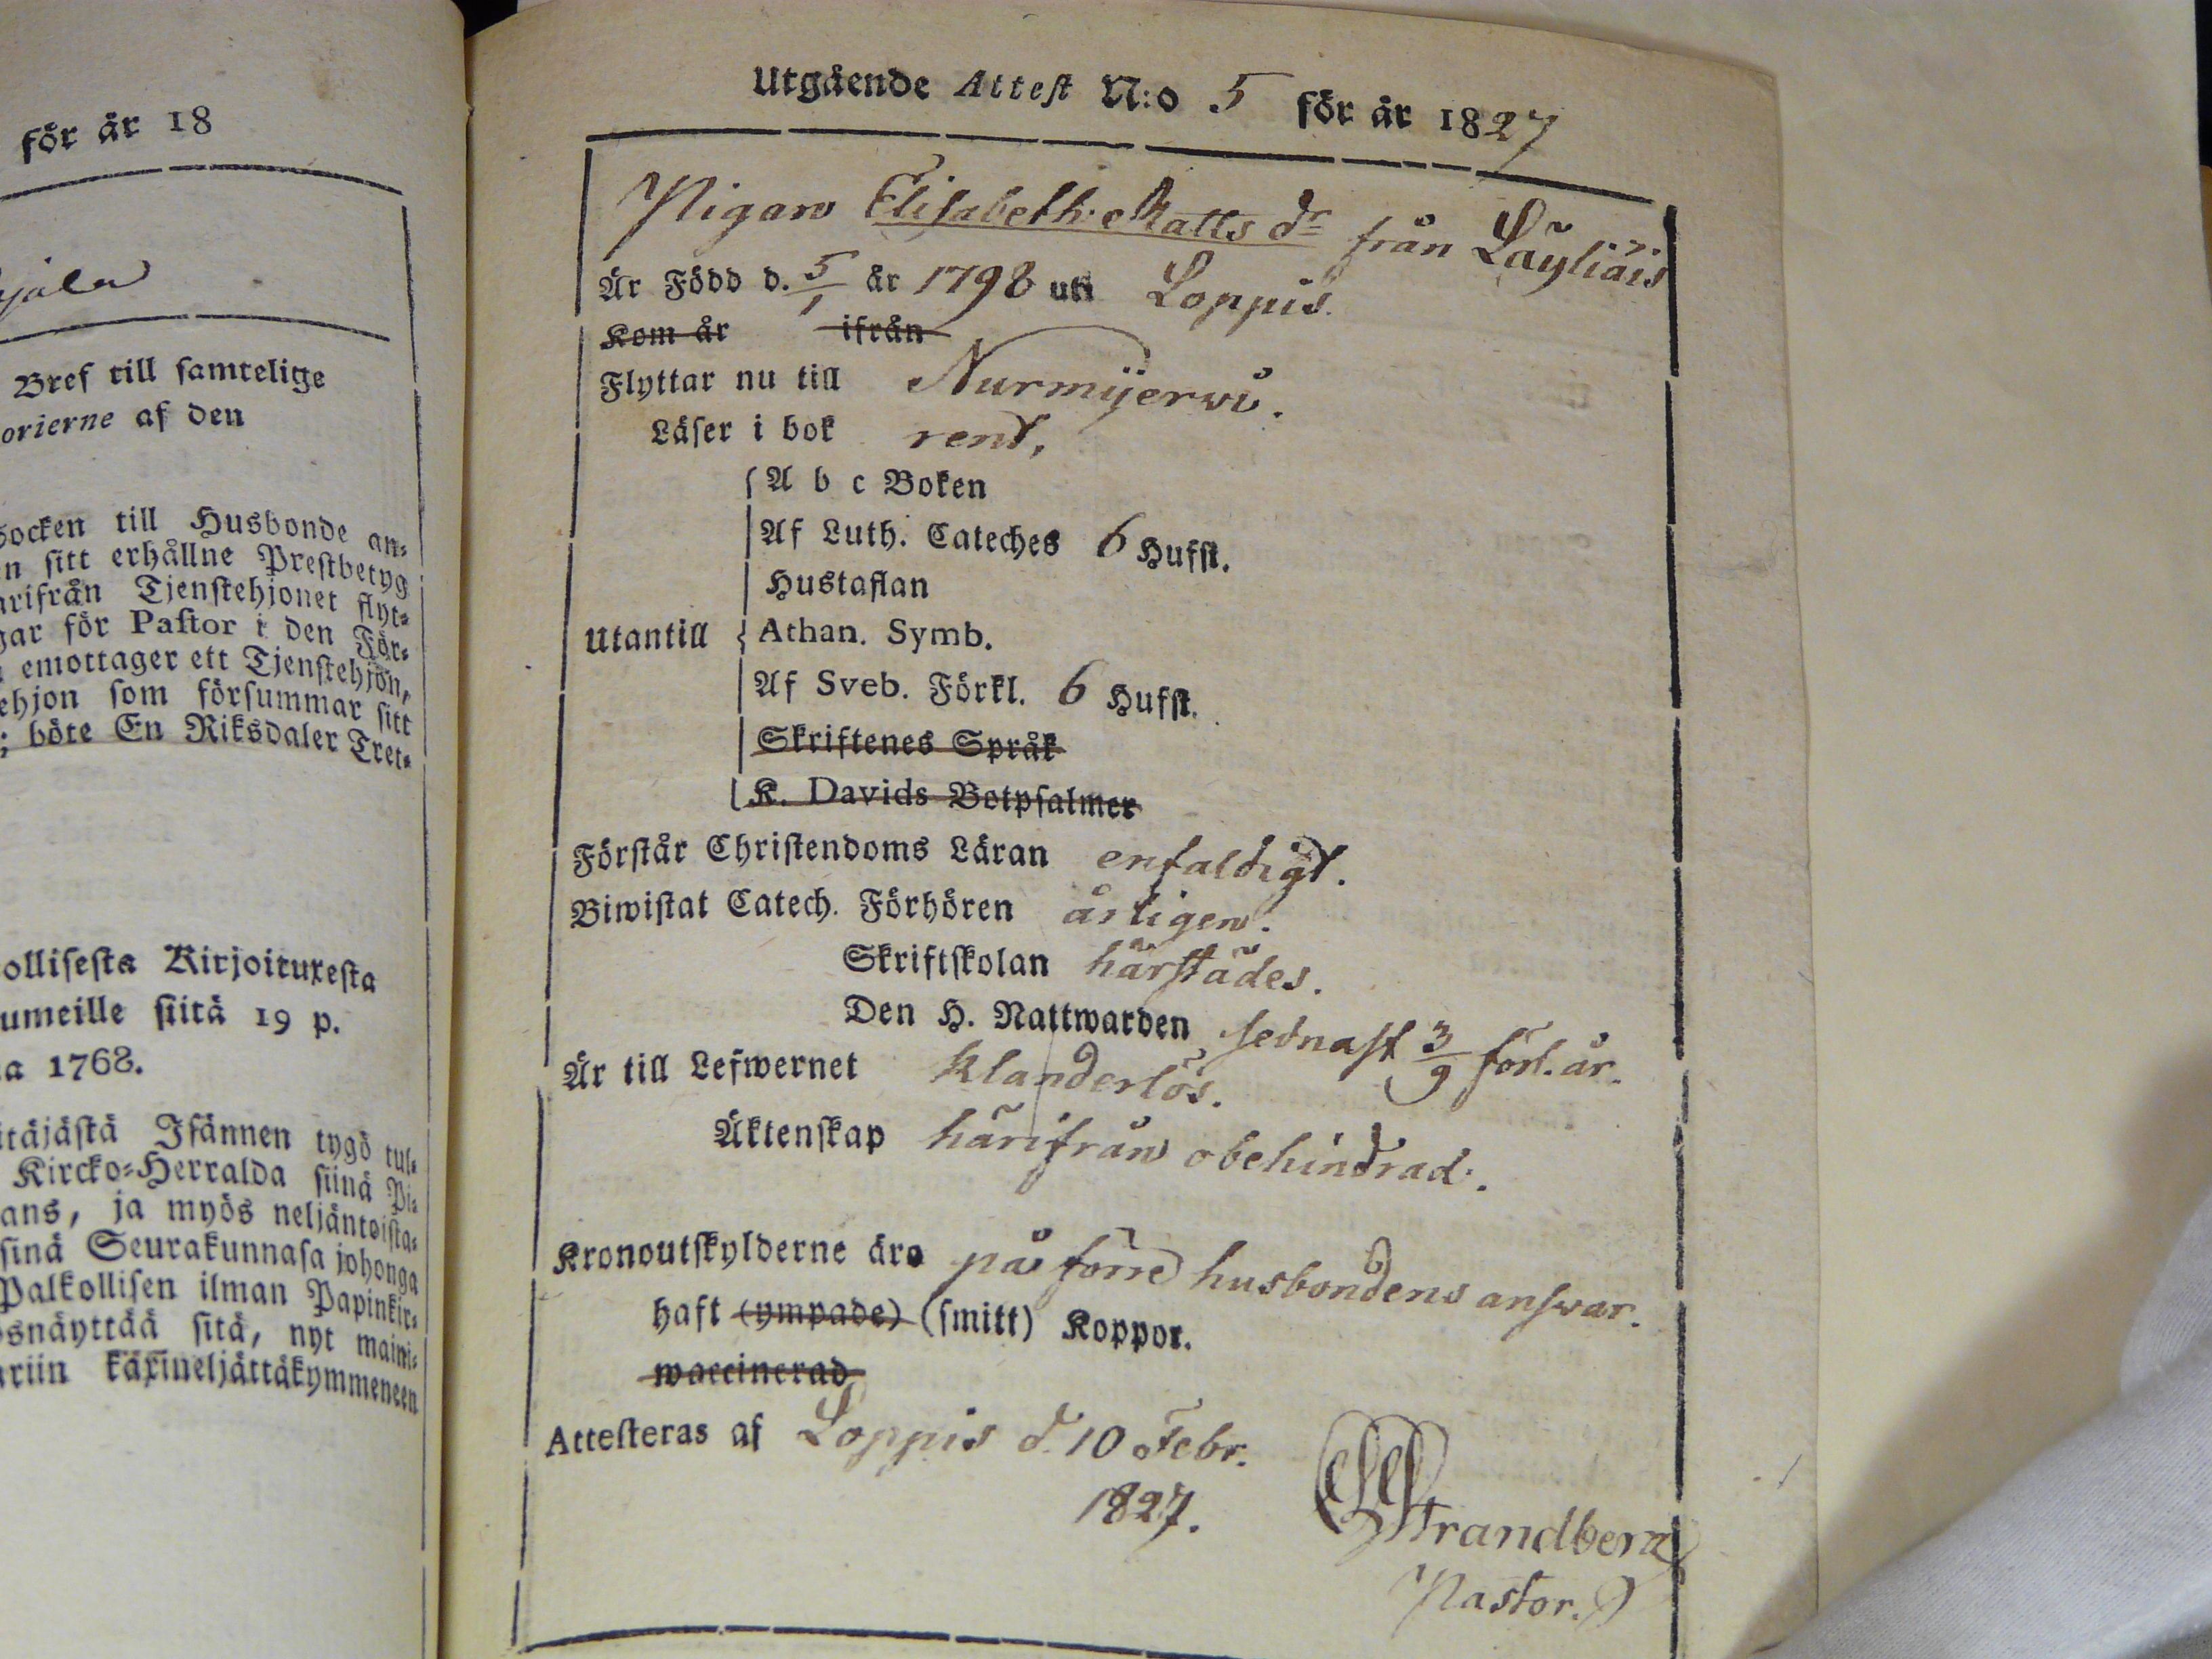 för år 18
Bref till samtelige
orierne af den
socken till Husbonde an-
n sitt erhållne Prestbetyg
arifrån Tjenstehjonet flyt-
gar för Pastor i den För-
emottager ett Tjenstehjon,
ehjon som försummar sitt
; böte En Riksdaler Tret-
ollisesta Kirjoituxesta
umeille siitä 19 p.
a 1768.
itäjästä Isännen tygö tul-
Kircko-Herralda siinä Pi-
ans, ja myös neljäntoista-
sinä Seurakunnasa johonga
Palkollisen ilman Papinkir-
osnäyttää sitä, nyt maini-
ariin käxineljättäkymmeneen
Utgående Attest N:o 5 för år 1827
Pigan Elisabeth Matts dr från Läyliäis
Är Född d. 5/1 år 1798 uti Loppis.
Kom år ifrån
Flyttar nu till Nurmijerwi.
Läser i bok rent,
A b c Boken
Af Luth. Cateches 6 Hufst.
Hustaflan
Utantill Athan. Symb.
Af Sveb. Förkl. 6 Hufst.
Skriftenes Språk
K. Davids Botpsalmer
Förstår Christendoms Läran enfaldigt.
Biwistat Catech. Förhören årligen.
Skriftskolan härstädes.
Den H. Nattwarden sednast 3/9 förl. år.
Är till Lefwernet klanderlös.
Äktenskap härifrån obehindrad.
Kronoutskylderne äro på förre husbondens answar.
haft (ympade) (smitt) Koppor.
waccinerad
Attesteras af Loppis d. 10 Febr.
1827.
Strandberg
Pastor.